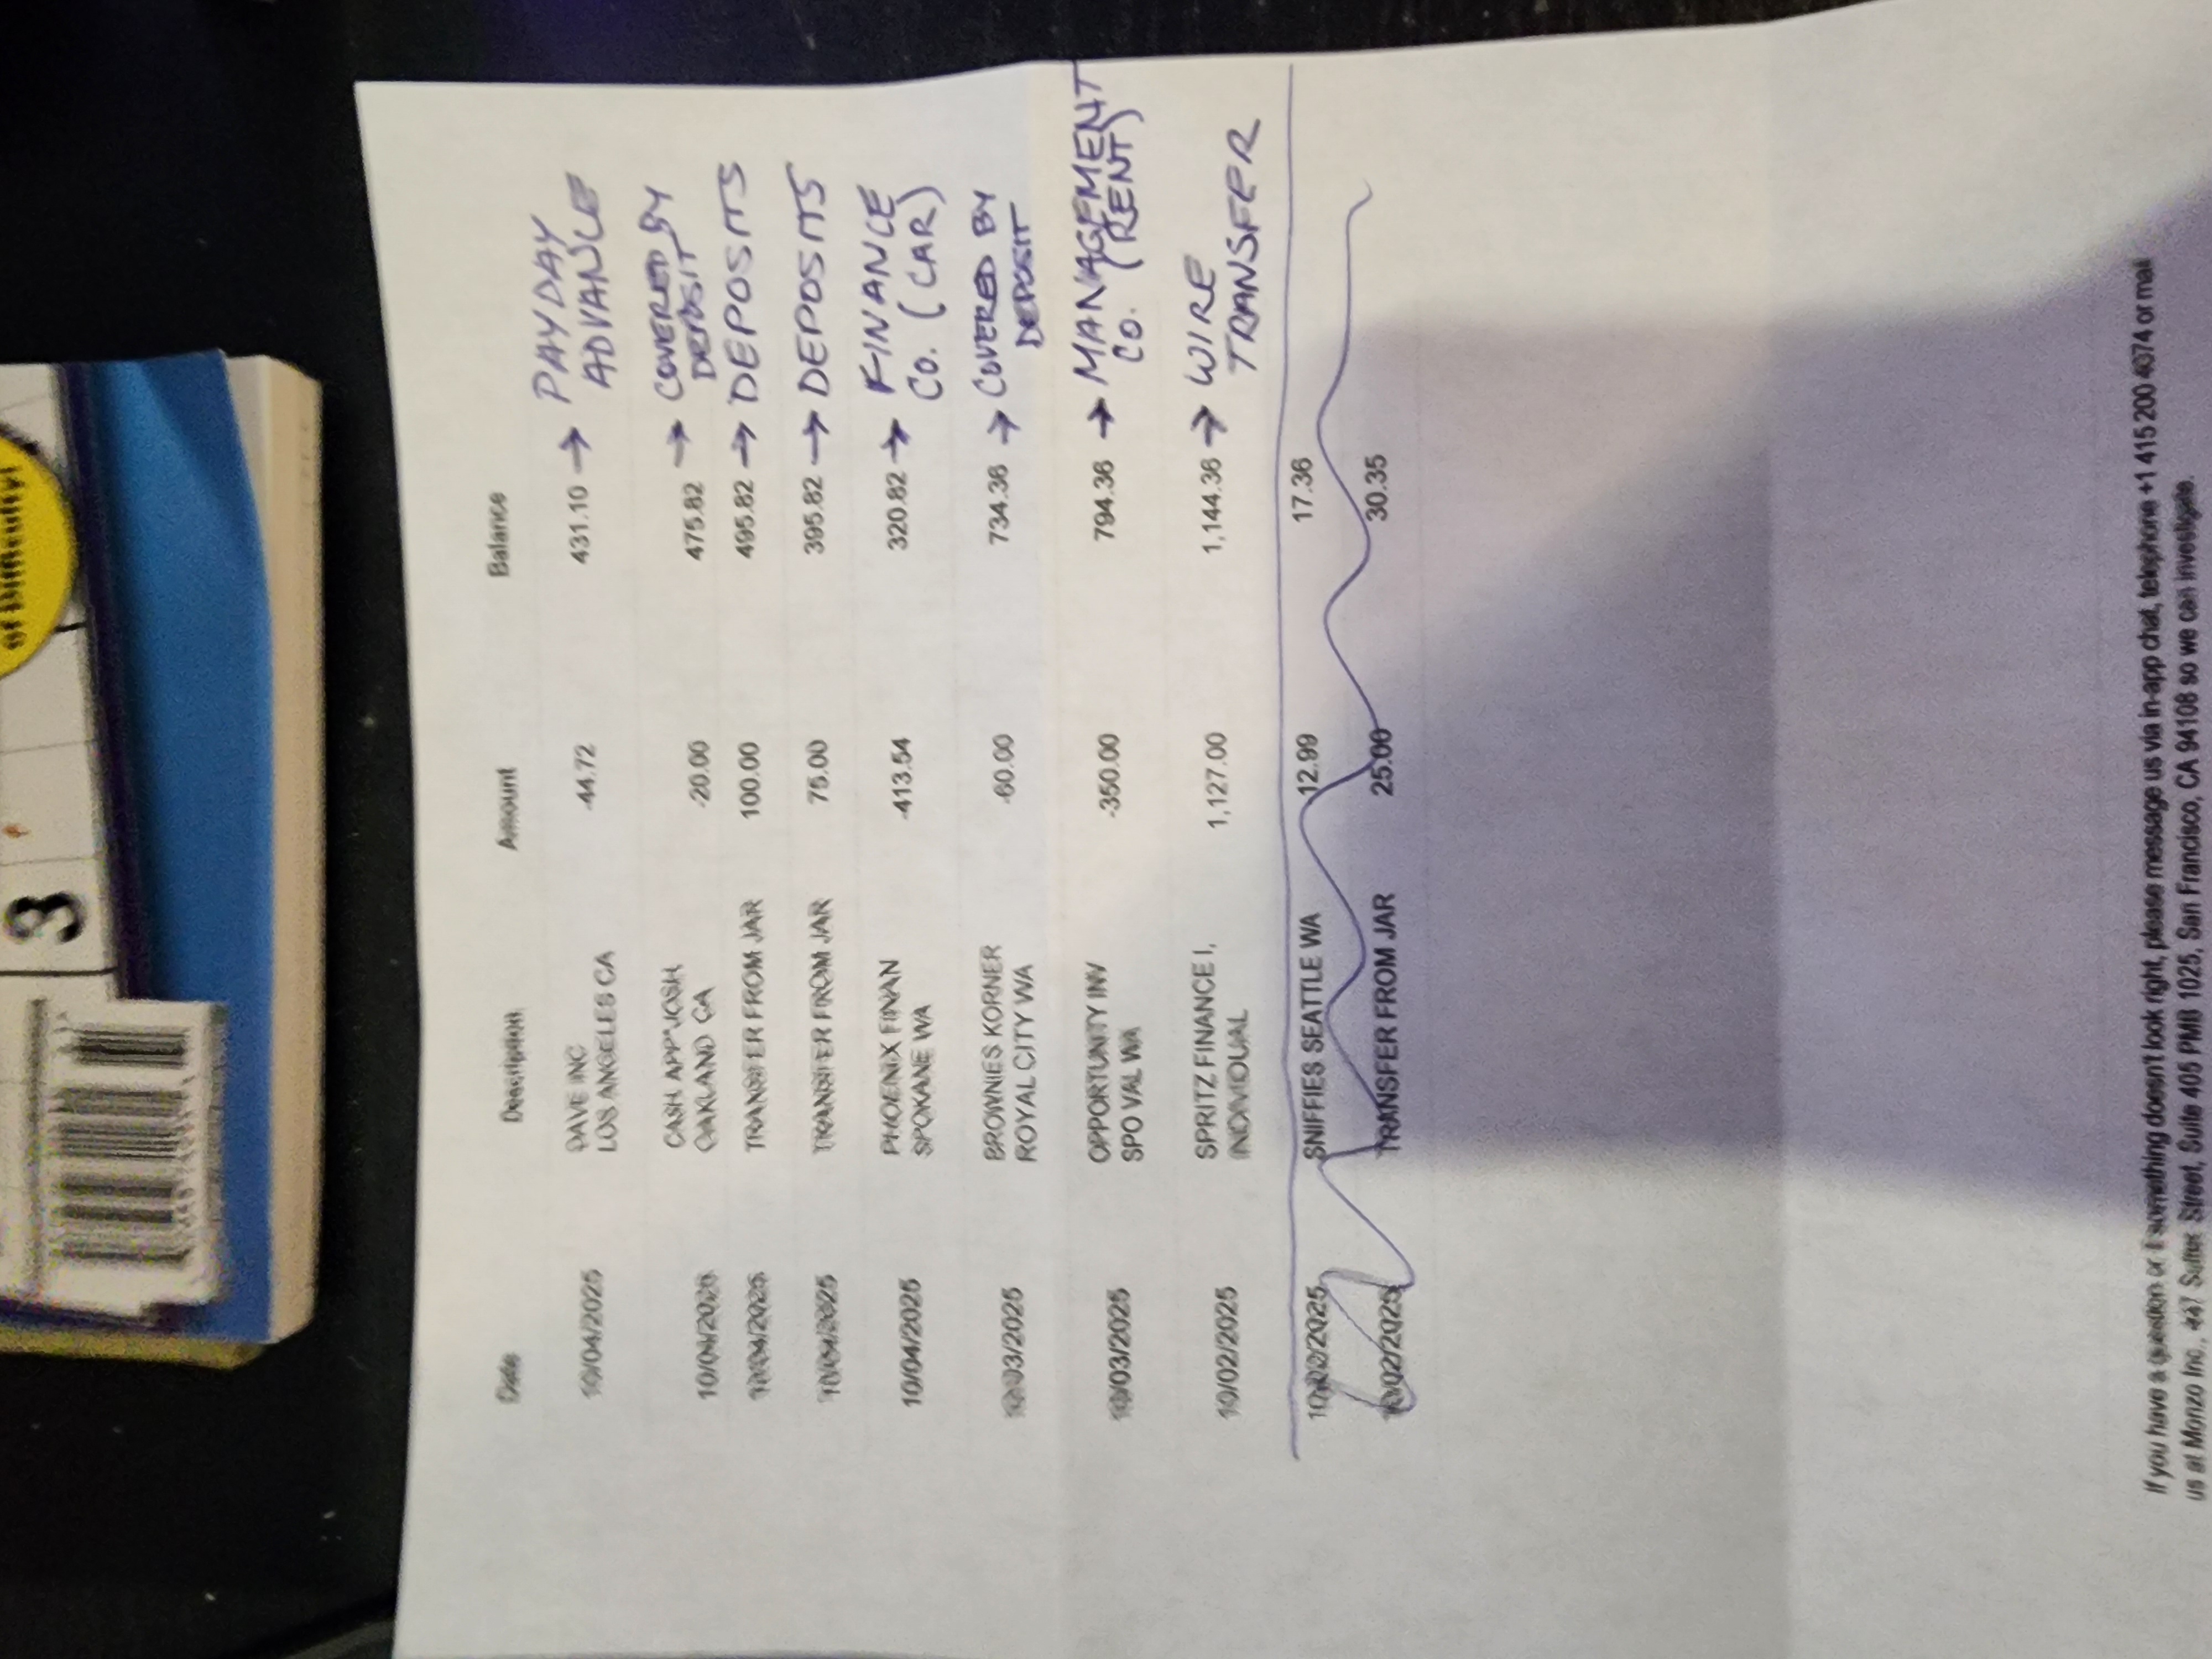 of Difficulty!
3
Date Description Amount Balance
10/04/2025 DAVE INC -44.72 431.10 → PAYDAY
LOS ANGELES CA ADVANCE
10/04/2025 CASH APP*JOSH -20.00 475.82 → COVERED BY
OAKLAND CA DEPOSIT
10/04/2025 TRANSFER FROM JAR 100.00 495.82 → DEPOSITS
10/04/2025 TRANSFER FROM JAR 75.00 395.82 → DEPOSITS
10/04/2025 PHOENIX FINAN -413.54 320.82 → FINANCE
SPOKANE WA CO. (CAR)
10/03/2025 BROWNIES KORNER -60.00 734.36 → COVERED BY
ROYAL CITY WA DEPOSIT
10/03/2025 OPPORTUNITY INV -350.00 794.36 → MANAGEMENT
SPO VAL WA CO. (RENT)
10/02/2025 SPRITZ FINANCE I, 1,127.00 1,144.36 → WIRE
INDIVIDUAL TRANSFER
SNIFFIES SEATTLE WA 12.99 17.36
10/02/2025 TRANSFER FROM JAR 25.00 30.35
If you have a question or if something doesn't look right, please message us via in-app chat, telephone +1 415 200 4074 or mail
us at Monzo Inc, 447 Sutter Street, Suite 405 PMB 1025, San Francisco, CA 94108 so we can investigate.